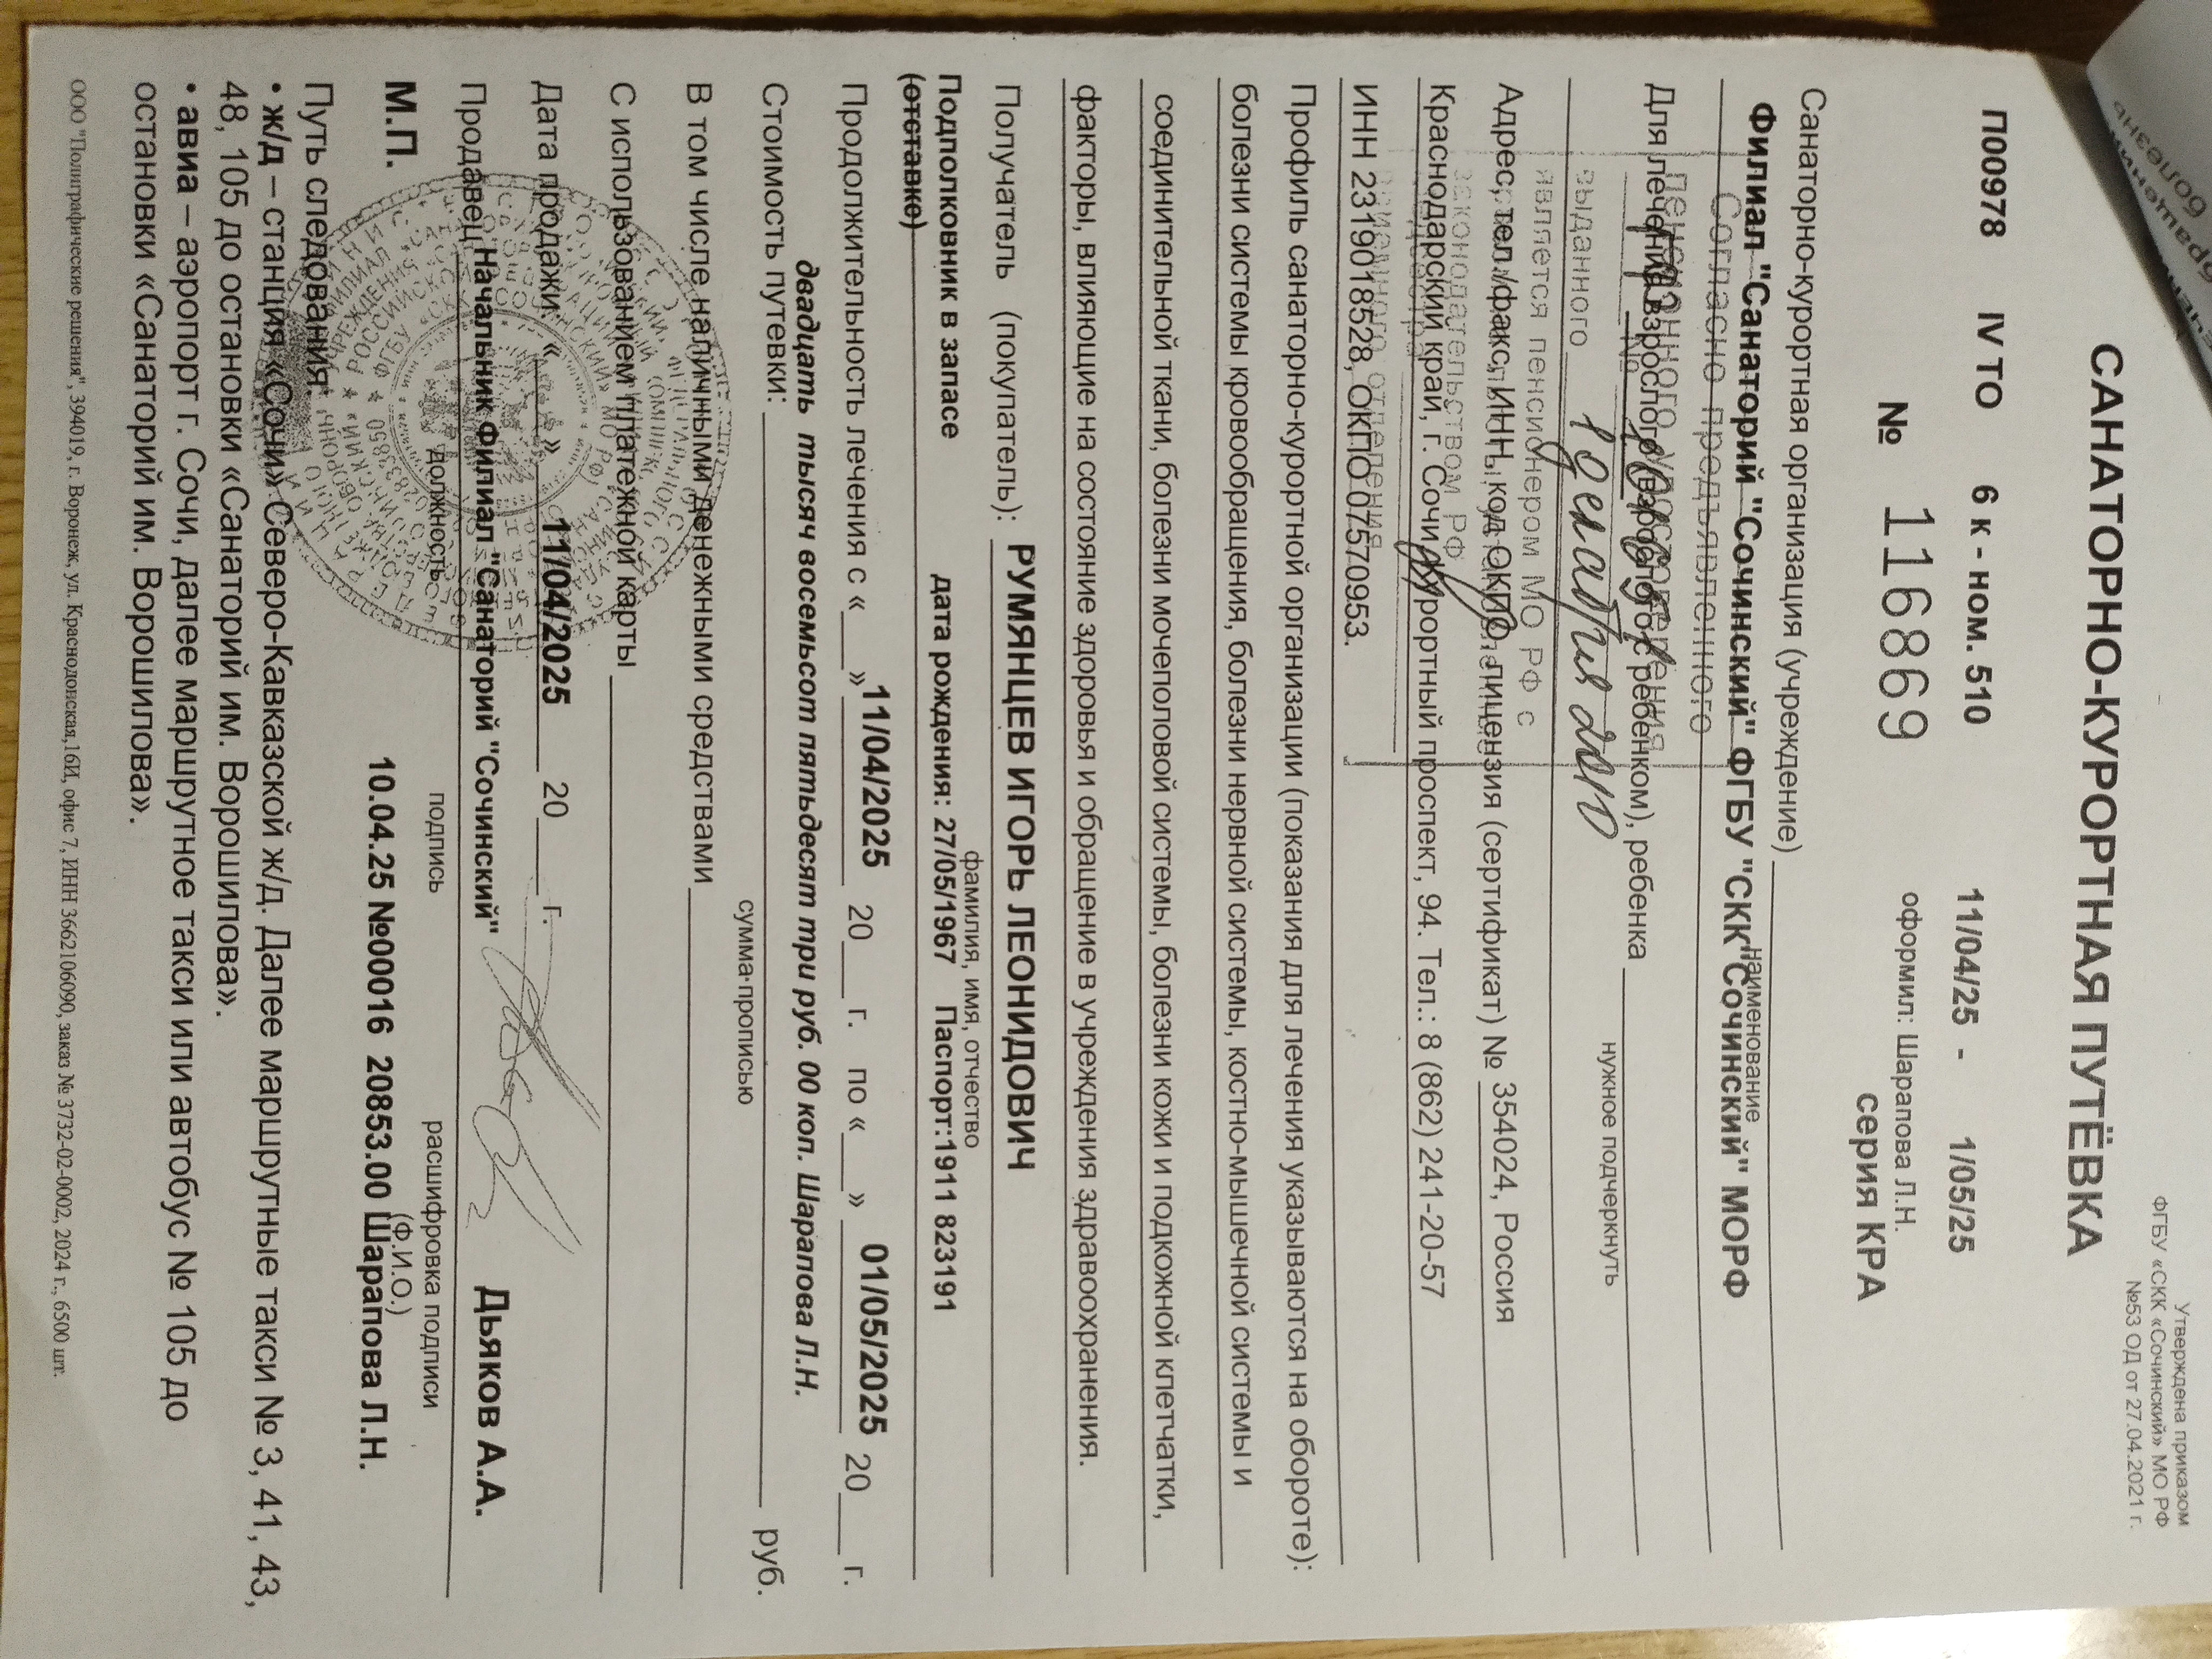 Утверждена приказом
ФГБУ «СКК «Сочинский» МО РФ
№53 ОД от 27.04.2021 г.
САНАТОРНО-КУРОРТНАЯ ПУТЁВКА
П00978 IV ТО 6 к - ном. 510 11/04/25 - 1/05/25
оформил: Шарапова Л.Н.
№ 116869 серия КРА
Санаторно-курортная организация (учреждение)
наименование
Филиал "Санаторий "Сочинский" ФГБУ "СКК "Сочинский" МОРФ
Согласно предъявленного
пенсионного удостоверения
Для лечения взрослого (взрослого с ребенком), ребенка
нужное подчеркнуть
№
выданного
является пенсионером МО РФ с
Адрес, тел./факс, ИНН, код ОКПО, лицензия (сертификат) № 354024, Россия
законодательством РФ
Краснодарский край, г. Сочи, Курортный проспект, 94. Тел.: 8 (862) 241-20-57
ИНН 2319018528, ОКПО 07570953.
Профиль санаторно-курортной организации (показания для лечения указываются на обороте):
болезни системы кровообращения, болезни нервной системы, костно-мышечной системы и
соединительной ткани, болезни мочеполовой системы, болезни кожи и подкожной клетчатки,
факторы, влияющие на состояние здоровья и обращение в учреждения здравоохранения.
Получатель (покупатель): РУМЯНЦЕВ ИГОРЬ ЛЕОНИДОВИЧ
фамилия, имя, отчество
Подполковник в запасе дата рождения: 27/05/1967 Паспорт:1911 823191
(отставке)
Продолжительность лечения с « » 11/04/2025 20 г. по « » 01/05/2025 20 г.
двадцать тысяч восемьсот пятьдесят три руб. 00 коп. Шарапова Л.Н.
Стоимость путевки: руб.
сумма прописью
В том числе наличными денежными средствами
С использованием платежной карты
Дата продажи: « » 11/04/2025 20 г.
Продавец Начальник Филиал "Санаторий "Сочинский" Дьяков А.А.
должность подпись расшифровка подписи
(Ф.И.О.)
М.П. 10.04.25 №00016 20853.00 Шарапова Л.Н.
Путь следования:
• ж/д – станция «Сочи» Северо-Кавказской ж/д. Далее маршрутные такси № 3, 41, 43,
48, 105 до остановки «Санаторий им. Ворошилова».
• авиа – аэропорт г. Сочи, далее маршрутное такси или автобус № 105 до
остановки «Санаторий им. Ворошилова».
ООО "Полиграфические решения", 394019, г. Воронеж, ул. Краснодонская,16И, офис 7, ИНН 3662106090, заказ № 3732-02-0002, 2024 г., 6500 шт.